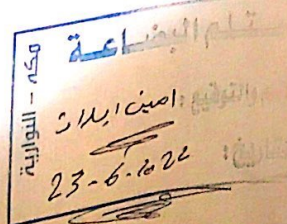 مستلم البضاعة
مكه - النوارية
والتوقيع: امين ايلات
التاريخ:
23-6-2022